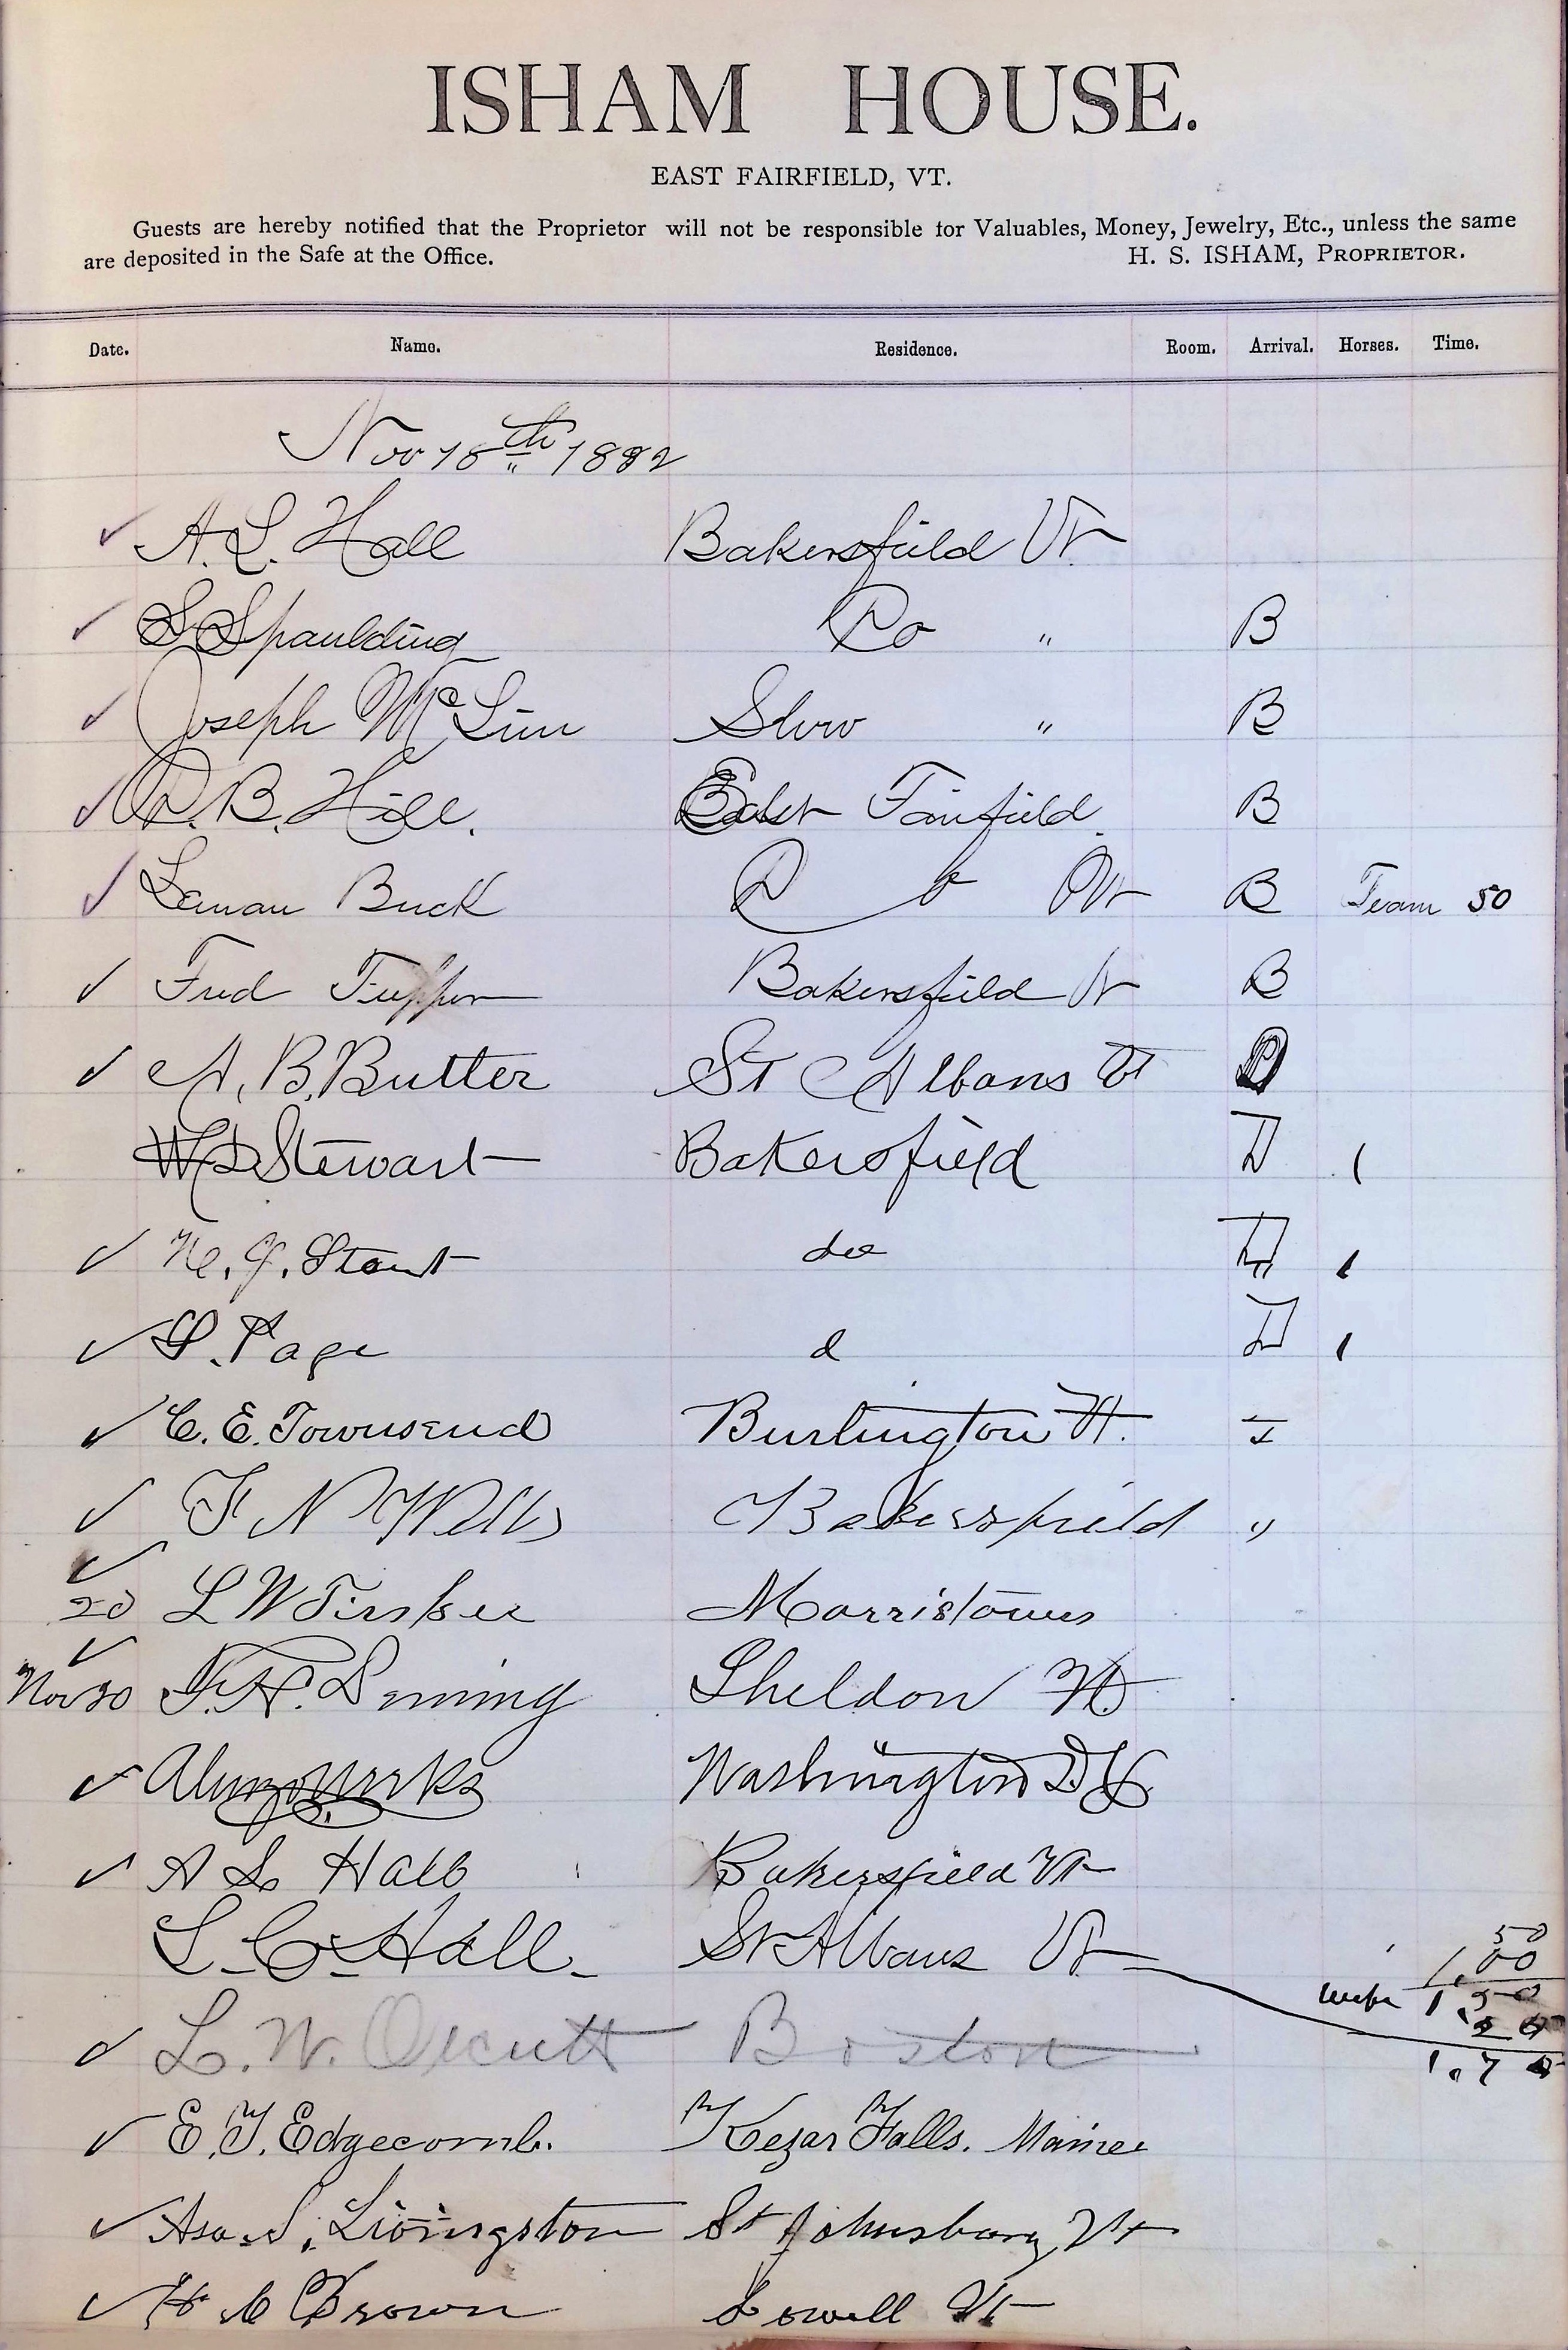 ISHAM HOUSE.
EAST FAIRFIELD, VT.
Guests are hereby notified that the Proprietor will not be responsible for Valuables, Money, Jewelry, Etc., unless the same
are deposited in the Safe at the Office. H. S. ISHAM, PROPRIETOR.
Date. Name. Residence. Room. Arrival. Horses. Time.
Nov 18th 1882
✓ A. L. Hall Bakersfield Vt.
✓ S Spaulding Do " B
✓ Joseph McLinn Stow " B
✓ D. B. Hill. East Fairfield. B
✓ Buck Do Vt B Team 50
✓ Fred Tupper Bakersfield Vt B
✓ A. B. Butter St Albans Vt D
Stewart Bakersfield D 1
✓ do D 1
✓ S. Page d D 1
✓ C. E. Townsend Burlington Vt.
✓ F N Wells Bakersfield "
✓
20 L W Morristown
✓
Nov 20 Deming Sheldon Vt
✓ Washington D C
✓ A L Hall Bakersfield Vt
L. C. Hall. St Albans Vt 50
1.00
wife 1.50
✓ L. W. Orcutt Boston 1.7
✓ E. T. Edgecomb. Kezar Falls. Maine
✓ Asa. S. Livingston St Johnsbury Vt
✓ H C Brown Lowell Vt